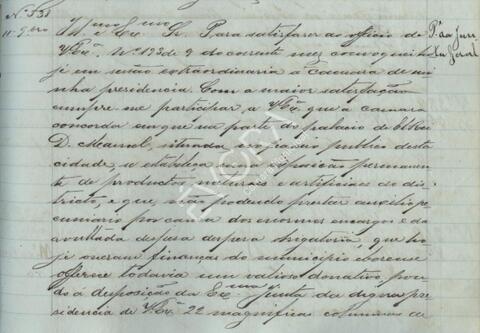 Nº 531
11-9-bro
Illmo e Exmo Sr. Para satisfazer ao officio de
V.Exª. Nº 193 de 9 do corrente mez convoquei ho
je em sessão extraordinaria a camara de mi
nha presidencia. Com a maior satisfação
cumpre me participar a V.Exª que a camara
concorda em que na parte do palacio de El Rei
D. Manuel, situada no passeio publico desta
cidade, se estabeleça uma exposição permanen
te de productos naturaes e artificiaes do dis
tricto, e que, não podendo prestar auxilio pe
cuniario por causa dos enormes encargos e da
avultada despesa obrigatoria, que ho
je oneram finanças do municipio eborense
offerece todavia um valioso donativo, pon
do á disposição da Exma Junta da digna pre
sidencia de V.Exª 22 magnificas columnas de
Pª a Jun
ta Geral